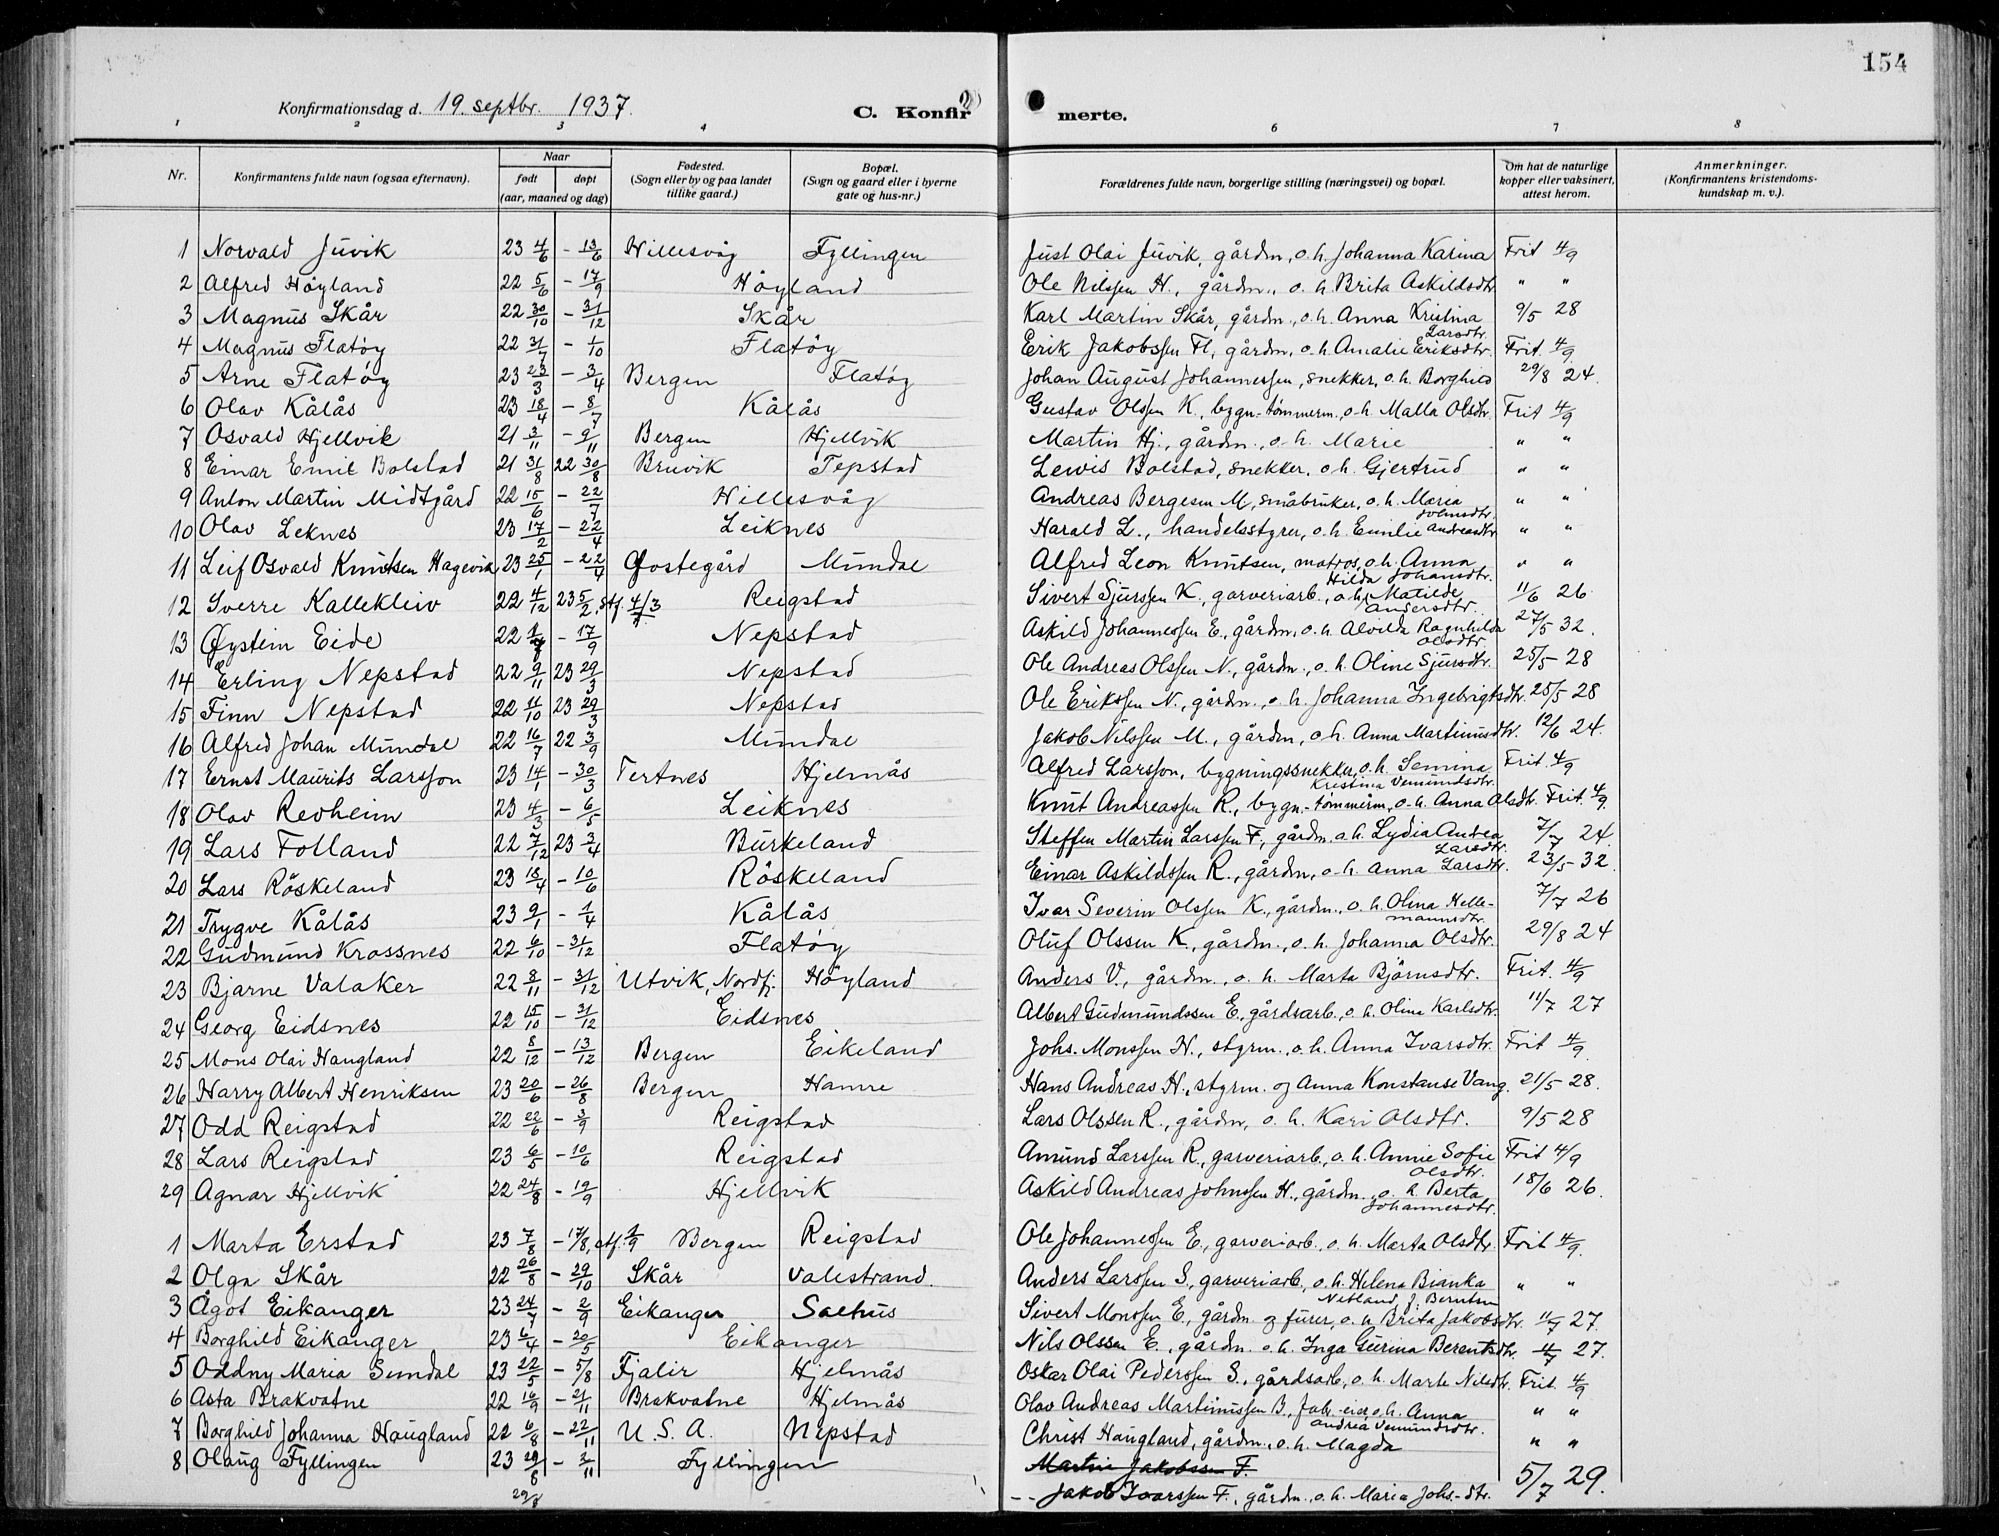 154
Konfirmationsdag d. 19. septbr. 1937.
C. Konfir merte.
1 2 3 4 6 7 8
Nr. Konfirmantens fulde navn (ogsaa efternavn). Naar født døpt (aar, maaned og dag) Fødested. (Sogn eller by og paa landet tillike gaard.) Bopæl. (Sogn og gaard eller i byerne gate og hus-nr.) Forældrenes fulde navn, borgerlige stilling (næringsvei) og bopæl. Om hat de naturlige kopper eller vaksinert, attest herom. Anmerkninger. (Konfirmantens kristendomskundskap m. v.)
1 Norvald Juvik 23 4/6 – 13/6 Hillesvåg Fyllingen Just Olai Juvik, gårdm, o. h. Johanna Karina Frit 4/9
2 Alfred Höyland 22 5/6 – 17/9 Höyland Ole Nilssen H., gårdm., o. h. Brita Askildsdtr. " "
3 Magnus Skår 22 30/10 – 31/12 Skår Karl Martin Skår, gårdm., o. h. Anna Kristina Larsdtr. 9/5 28
4 Magnus Flatöy 22 31/7 – 1/10 Flatöy Erik Jakobssen Fl, gårdm, o. h. Amalie Eriksdtr. Frit. 4/9
5 Arne Flatöy 23 23/3 – 3/4 Bergen Flatöy Johan August Johannessen, snekker, o. h. Borghild 29/8 24.
6 Olav Kålås 23 18/4 – 8/7 Kålås Gustav Olssen K., bygn.-tømmerm., o. h. Malla Olsdtr. Frit 4/9
7 Osvald Hjellvik 21 3/11 – 9/11 Bergen Hjellvik Martin Hj., gårdm., o. h. Marie " "
8 Einar Emil Bolstad 21 31/8 22 30/8 Bruvik Tepstad Lewis Bolstad, snekker, o. h. Gjertrud " "
9 Anton Martin Midtgård 22 15/6 – 22/7 Hillesvåg Andreas Bergesen M., småbruker, o. h. Maria Johnsdtr. " "
10 Olav Leknes 23 17/2 – 22/4 Leiknes Harald L., handelsstyrer, o. h. Emilie Andreasdtr. " "
11 Leif Osvald Knutsen Hagevik 23 25/1 – 22/4 Gostegård Mundal Alfred Leon Knutsen, matros, o. h. Anna Hilda Johansdtr. " "
12 Sverre Kallekleiv 22 4/12 23 5/2, stf. 4/3 Reigstad Sivert Sjurssen K., garveriarb., o. h. Matilde Andersdtr. 11/6 26
13 Øystein Eide 22 – 17/9 Nepstad Askild Johannessen E., gårdm., o. h. Alvilda Ragnhilda Olsdtr. 27/5 32.
14 Erling Nepstad 22 9/11 23 29/3 Nepstad Ole Andreas Olssen N., gårdm., o. h. Oline Sjursdtr. 25/5 28
15 Finn Nepstad 22 11/10 23 29/3 Nepstad Ole Erikssen N., gårdm., o. h. Johanna Ingebrigtsdtr. 25/5 28
16 Alfred Johan Mundal 22 16/7 22 3/9 Mundal Jakob Nilssen M., gårdm, o. h. Anna Martinusdtr. 12/6 24.
17 Ernst Maurits Larsson 23 14/1 – 30/3 Tertnes Hjelmås Alfred Larsson, bygningssnekker, o. h. Semina Kristina Vemundsdtr. Frit. 4/9
18 Olav Revheim 23 4/3 – 6/5 Leiknes Knut Andreassen R., bygn.-tømmerm., o. h. Anna Olsdtr. Frit. 4/9.
19 Lars Folland 22 7/12 23 3/4 Burkeland Steffen Martin Larssen F., gårdm. o. h. Lydia Andrea Larsdtr. 7/7 24.
20 Lars Röskeland 23 18/4 – 10/6 Röskeland Einar Askildssen R., gårdm, o. h. Anna Larsdtr. 23/5 32.
21 Trygve Kålås 23 9/1 – 1/4 Kålås Ivar Severin Olssen K., gårdm., o. h. Olina Hellemannsdtr. 7/7 26
22 Gudmund Krossnes 22 6/10 – 31/12 Flatöy Oluf Olssen K., gårdm., o. h. Johanna Olsdtr. 29/8 24
23 Bjarne Valaker 22 8/11 – 31/12 Utvik, Nordfj. Höyland Anders V., gårdm., o. h. Marta Björnsdtr. Frit. 4/9
24 Georg Eidsnes 22 15/10 – 31/12 Eidsnes Albert Gudmundssen E., gårdsarb., o. h. Olina Karlsdtr. 11/7 27
25 Mons Olai Haugland 22 8/12 – 13/12 Bergen Eikeland Johs. Monssen H., styrm., o. h. Anna Ivarsdtr. Frit 4/9.
26 Harry Albert Henriksen 23 20/6 – 26/8 Bergen Hamre Hans Andreas H., styrm. og Anna Konstanse Vang. 21/5 28.
27 Odd Reigstad 22 22/6 – 3/9 Reigstad Lars Olssen R., gårdm, o. h. Kari Olsdtr. 9/5 28
28 Lars Reigstad 23 6/5 – 10/6 Reigstad Amund Larssen R., garveriarb., o. h. Annie Sofie Olsdtr. Frit 4/9
29 Agnar Hjellvik 22 24/8 – 19/9 Hjellvik Askild Andreas Johnssen H., gårdm., o. h. Berta Johannesdtr. 18/6 26.
1 Marta Erstad 23 7/8 – 17/8, stf. Bergen Reigstad Ole Johannessen E., garveriarb., o. h. Marta Olsdtr. Frit 4/9.
2 Olga Skår 22 26/8 – 29/10 Skår Valestrand. Anders Larssen S., garveriarb., o. h. Helena Bianka Netland f. Berntsen " "
3 Ågot Eikanger 23 24/7 – 2/9 Eikanger Saehus Sivert Monssen E., gårdm. og furer, o. h. Brita Jakobsdtr. 11/7 27.
4 Borghild Eikanger 23 6/4 – 20/5 Eikanger Nils Olssen E., gårdm. o. h. Inga Gurina Berentsdtr. 27.
5 Oddny Maria Sundal 23 22/5 – 5/8 Fjalir Hjelmås Oskar Olai Pederssen S., gårdsarb., o. h. Marte Nilsdtr. Frit. 4/9
6 Asta Brakvatne 22 16/9 – 21/11 Brakvatne Hjelmås Olav Andreas Martinussen B., fab.-eier o. h. Anna Andrea Vemundsdtr. " "
7 Borghild Johanna Haugland 22 6/8 – 22/11 U. S. A. Nepstad Christ Haugland, gårdm., o. h. Magda " "
8 Olaug Fyllingen 23 29/8 – 2/11 Fyllingen Martin Jakobssen F.
29/8 -- Jakob Ivarssen F., gårdm., o. h. Maria Johs-dtr. 5/7 29.